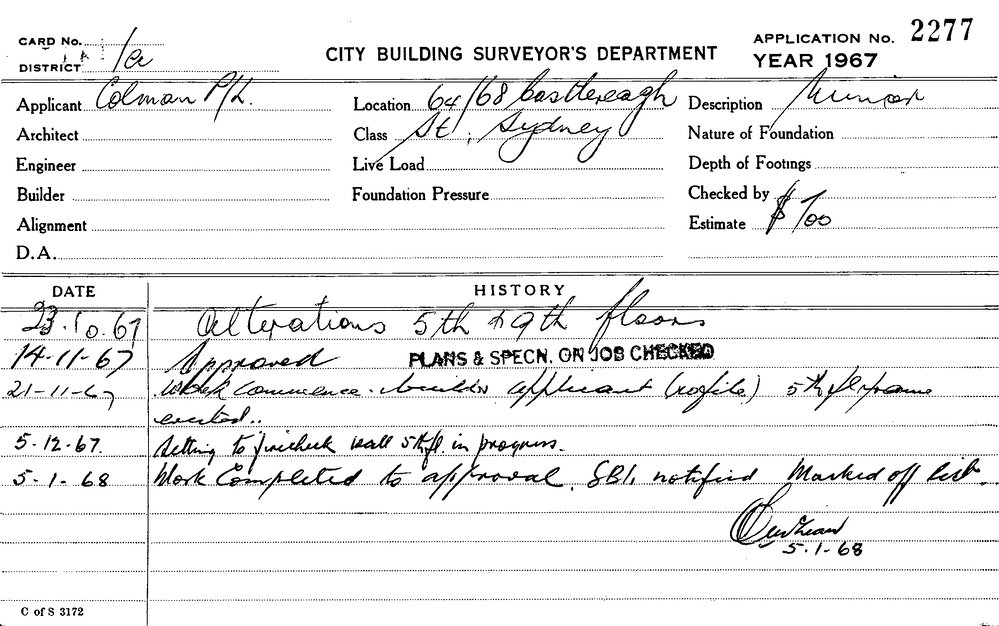 CARD No. 1/a
DISTRICT
CITY BUILDING SURVEYOR'S DEPARTMENT
APPLICATION No. 2277
YEAR 1967
Applicant Colman P/L.
Location 64/68 Castlereagh
Description Minor
Architect
Class St, Sydney
Nature of Foundation
Engineer
Live Load
Depth of Footings
Builder
Foundation Pressure
Checked by
Alignment
Estimate $700
D.A.
DATE HISTORY
23.10.67 Alterations 5th & 9th floors
14-11-67 Approved PLANS & SPECN. ON JOB CHECKED
21-11-67 Work commence. builder applicant (rofile) 5th fl frame
erected..
5.12.67. Setting to firecheck wall 5th fl. in progress.
5-1-68 Work Completed to approval. SBI. notified Marked off list.
5.1-68
C of S 3172